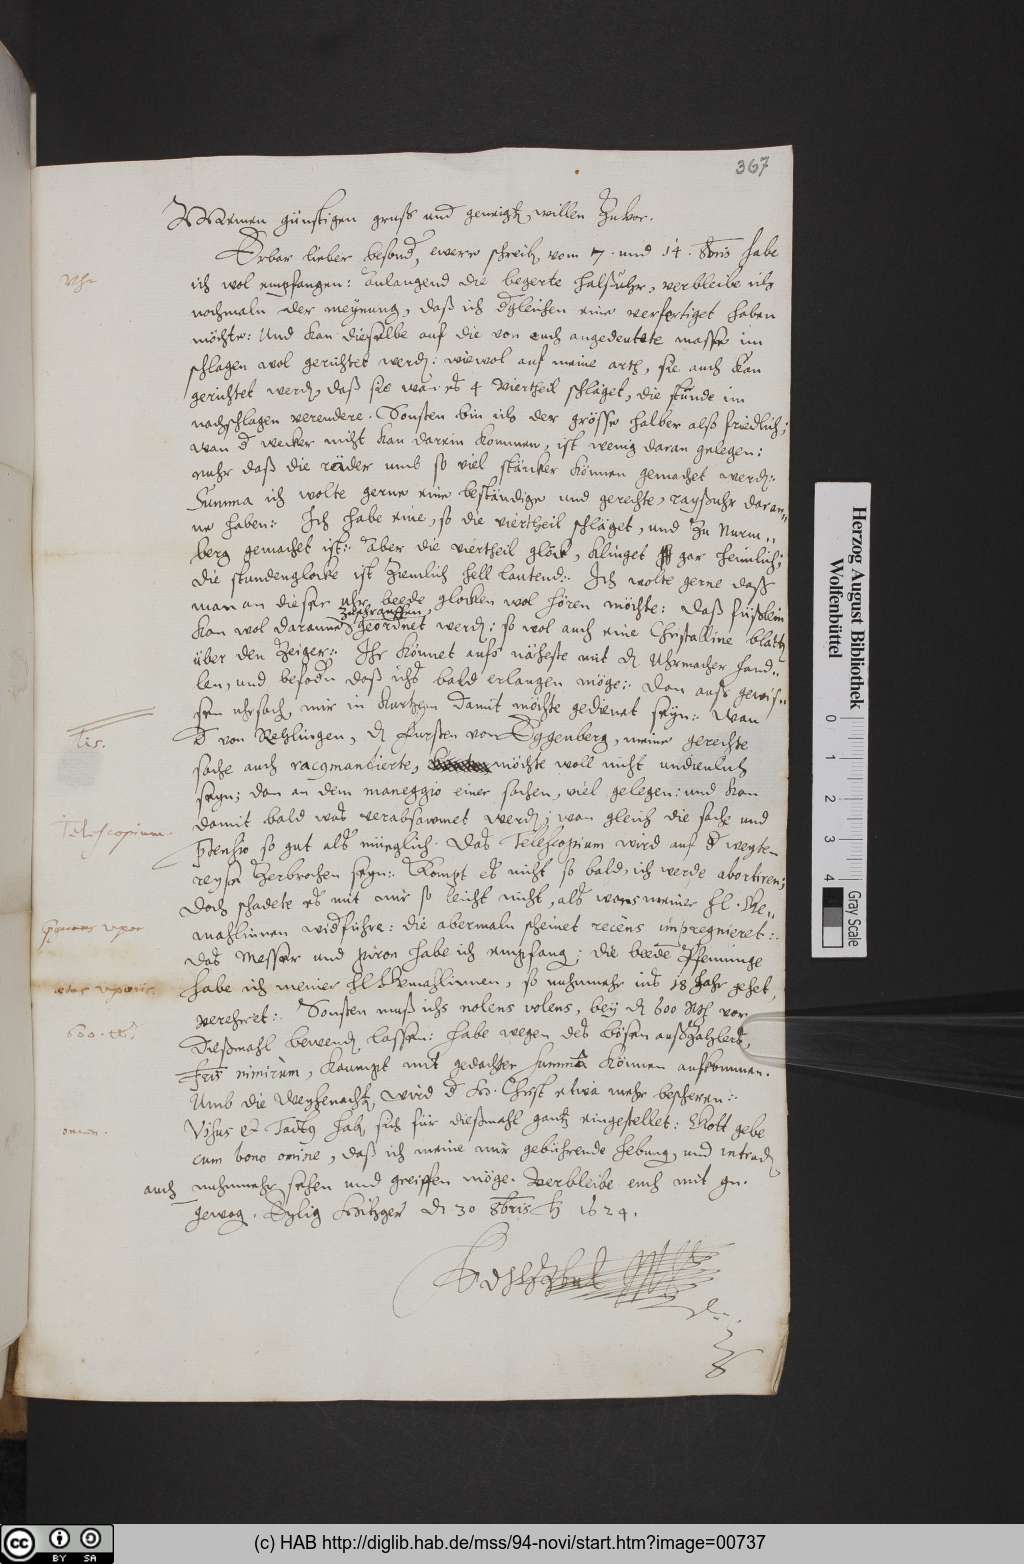 367
Meinen günstigen gruß und geneigt, willen Zuvor.
Erbar lieber besond, ewere schreib, vom 7. und 14. 8bris habe
ich wol empfangen: Anlangend die begerte halßuhr, verbleibe ich
Uhr
nochmaln der meynung, daß ich dgleichen eine verfertiget haben
möchte: Und kan dieselbe auf die von euch angedeutete masse im
schlagen wol gerichtet werd: wiewol auf meine arth, sie auch kan
gerichtet werd, daß sie wan es 4 viertheil schläget, die stunde im
nachschlagen verendere. Sonsten bin ich der grösse halber alß friedlich;
wan d wecker nicht kan darein kommen, ist wenig daran gelegen:
nuhr daß die räder umb so viel stärcker können gemachet werd:
Summa ich wolte gerne eine beständige und gerechte, rayßuhr daran
ne haben: Ich habe eine, so die viertheil schläget, und Zu Nurm
berg gemachet ist: Aber die viertheil glock, klinget gar heimlich;
die stundenglocke ist Ziemlich hell lautend: Ich wolte gerne daß
man an dieser uhr beede glocken wol hören möchte: daß füßlein
kan wol daranne geordnet werd: so wol auch eine Christalline blatt
über den Zeiger: Ihr könnet aufs näheste mit d Uhrmacher hand
len, und befodn daß ichs bald erlangen möge: dan auß gewis
sen uhrsach, mir in kurtzem damit möchte gedienet seyn: Wan
d von Rehlingen, d Fursten von Eggenberg, meine gerechte
lis.
sache auch racomandierte, möchte woll nicht undienlich
seyn; dan an dem maneggio einer sachen, viel gelegen: und kan
damit bald was verabsaumet werd; wan gleich die sache und
Telescopium.
so gut als müglich. Das Telescopium wird auf d weyten
reyse Zerbrochen seyn: Kompt es nicht so bald, ich werde abortiren;
doch schadete es mit mir so leicht nicht, als wans meiner hl. Ge
mahlinnen widführe: die abermaln scheinet recens impregnieret:
uxor
das Messer und piron habe ich empfang; die beede Pfenninge
habe ich meiner hl Gemahlinnen, so nuhnmehr ins 18 Jahr gehet,
ætas uxoris.
verehret: Sonsten muß ichs nolens volens, bey d 600 vor
600
dießmahl bewend, lassen: habe wegen des bösen außZahlers,
fris nimirum, kaumpt mit gedachter summa können aufkommen.
Umb die Weyhenacht, wird d H. Christ etwa mehr bescheren:
Visus et Tact9 hab, sich für dießmahl gantz eingestellet: Gott gebe
omen.
cum bono omine, daß ich meine mir gebührende hebung, und intrad,
auch nuhnmehr sehen und greiffen möge. Verbleibe euch mit gn.
gewog. Eylig Hitzger d 30 8bris 1624.
Herzog August Bibliothek
Wolfenbüttel
0 1 2 3 4
Gray Scale
BY SA
(c) HAB http://diglib.hab.de/mss/94-novi/start.htm?image=00737